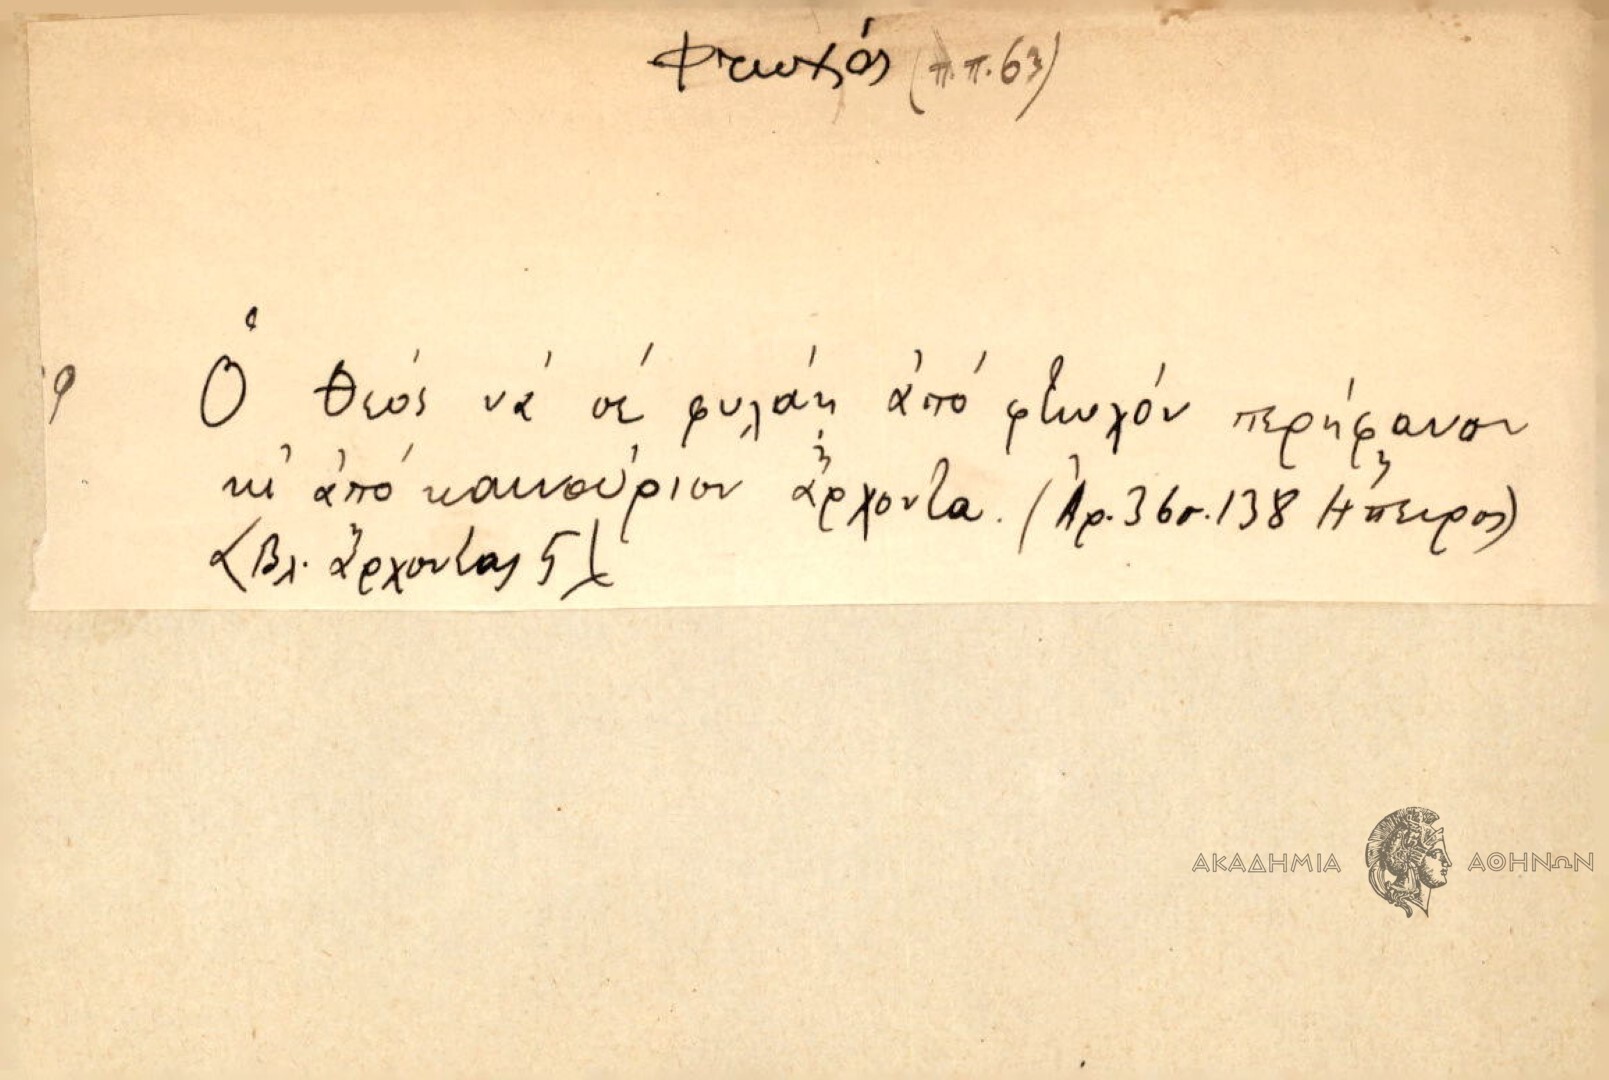 Φτωχός (π.π. 63)
Ὁ Θεός νά σέ φυλάη ἀπό φτωχόν περήφανον
κι ἀπό καινούριον ἄρχοντα. (Ἀρ. 36 σ. 138 Ἤπειρος)
(Βλ. ἄρχοντας 5)
ΑΚΑΔΗΜΙΑ ΑΘΗΝΩΝ